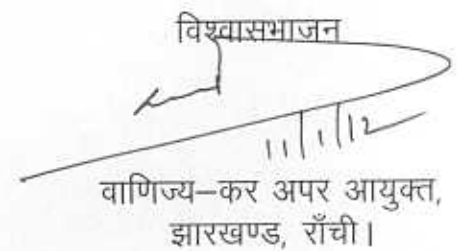 विश्वासभाजन
11/1/12
वाणिज्य–कर अपर आयुक्त,
झारखण्ड, राँची।